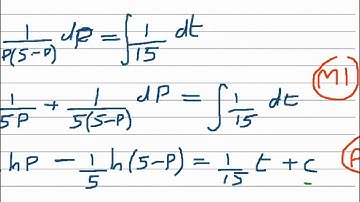 1/P(5-P) dP = ∫ 1/15 dt
1/5P + 1/5(5-P) dP = ∫ 1/15 dt
M1
lnP - 1/5 ln(5-P) = 1/15 t + c